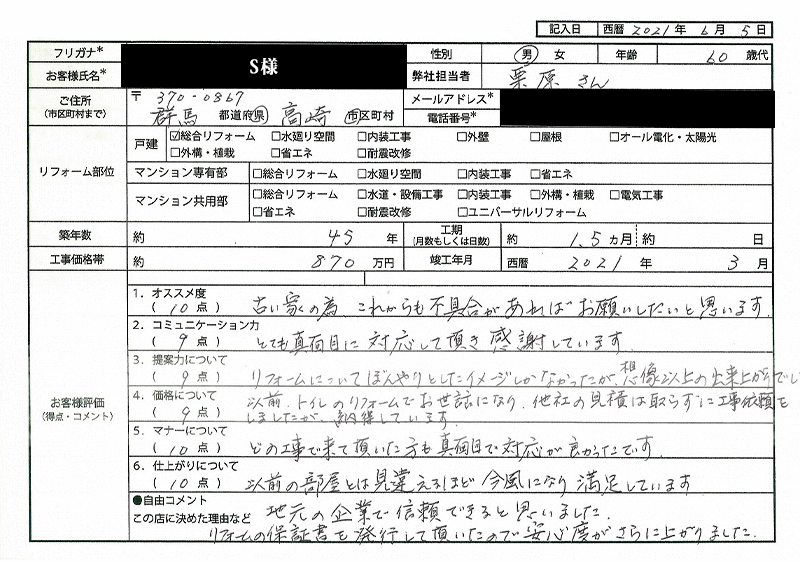 記入日 西暦 2021 年 6 月 5 日
フリガナ* S様 性別 男 女 年齢 60 歳代
お客様氏名* 弊社担当者 栗原さん
ご住所 (市区町村まで) 〒 370-0867 メールアドレス*
群馬 都道府県 高崎 市区町村 電話番号*
リフォーム部位
戸建 ☑総合リフォーム □水廻り空間 □内装工事 □外壁 □屋根 □オール電化・太陽光
□外構・植栽 □省エネ □耐震改修
マンション専有部 □総合リフォーム □水廻り空間 □内装工事 □省エネ
マンション共用部 □総合リフォーム □水道・設備工事 □内装工事 □外構・植栽 □電気工事
□省エネ □耐震改修 □ユニバーサルリフォーム
築年数 約 45 年 工期 (月数もしくは日数) 約 1.5 カ月 約 日
工事価格帯 約 870 万円 竣工年月 西暦 2021 年 3 月
お客様評価
(得点・コメント)
1. オススメ度
( 10 点 ) 古い家の為、これからも不具合があればお願いしたいと思います。
2. コミュニケーション力
( 9 点 ) とても真面目に対応して頂き感謝しています。
3. 提案力について
( 9 点 ) リフォームについてぼんやりとしたイメージしかなかったが、想像以上の出来上がりでし
4. 価格について
( 9 点 ) 以前、トイレのリフォームでお世話になり、他社の見積は取らずに工事依頼を
しましたが、納得しています
5. マナーについて
( 10 点 ) どの工事で来て頂いた方も真面目で対応が良かったです.
6. 仕上がりについて
( 10 点 ) 以前の部屋とは見違えるほど今風になり満足しています
●自由コメント
この店に決めた理由など 地元の企業で信頼できると思いました.
リフォームの保証書も発行して頂いたので安心度がさらに上がりました.